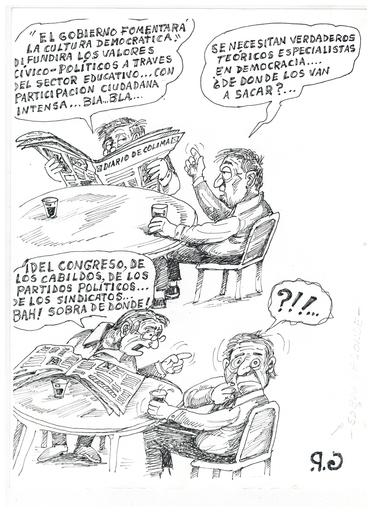 "EL GOBIERNO FOMENTARÁ
LA CULTURA DEMOCRÁTICA."
DIFUNDIRA LOS VALORES
CIVICO-POLITICOS A TRAVES
DEL SECTOR EDUCATIVO...CON
PARTICIPACION CIUDADANA
INTENSA...BLA...BLA...
SE NECESITAN VERDADEROS
TEÓRICOS ESPECIALISTAS
EN DEMOCRACIA....
¿DE DONDE LOS VAN
A SACAR?...
DIARIO DE COLIMA
¡DEL CONGRESO, DE
LOS CABILDOS, DE LOS
PARTIDOS POLÍTICOS...
DE LOS SINDICATOS...
BAH! SOBRA DE DONDE!
?!!...
G.R.